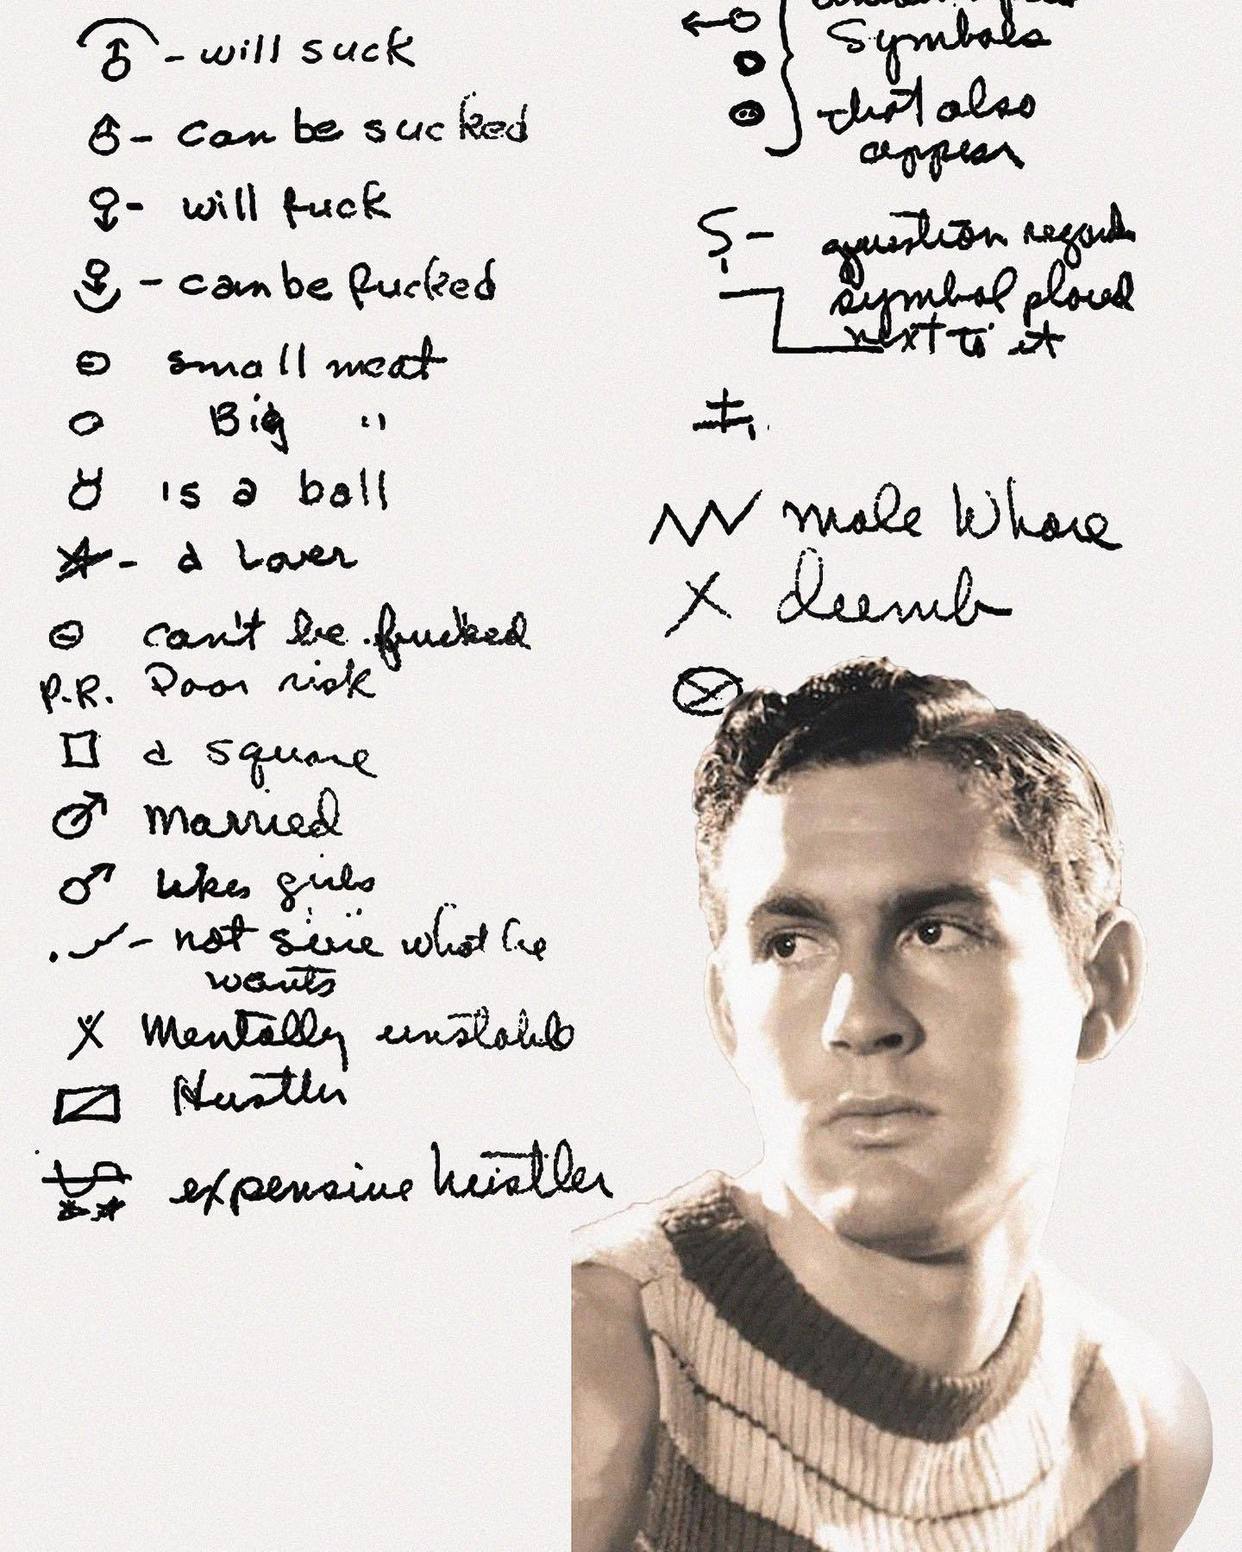 - will suck
- can be sucked
- will fuck
- can be fucked
small meat
Big "
is a ball
- a Lover
can't be fucked
P.R. Poor risk
a square
Married
likes girls
- not sure what he
wants
X Mentally unstable
Hustler
expensive hustler
Symbols
that also
appear
S -
symbol placed
next to it
male Whore
X dumb